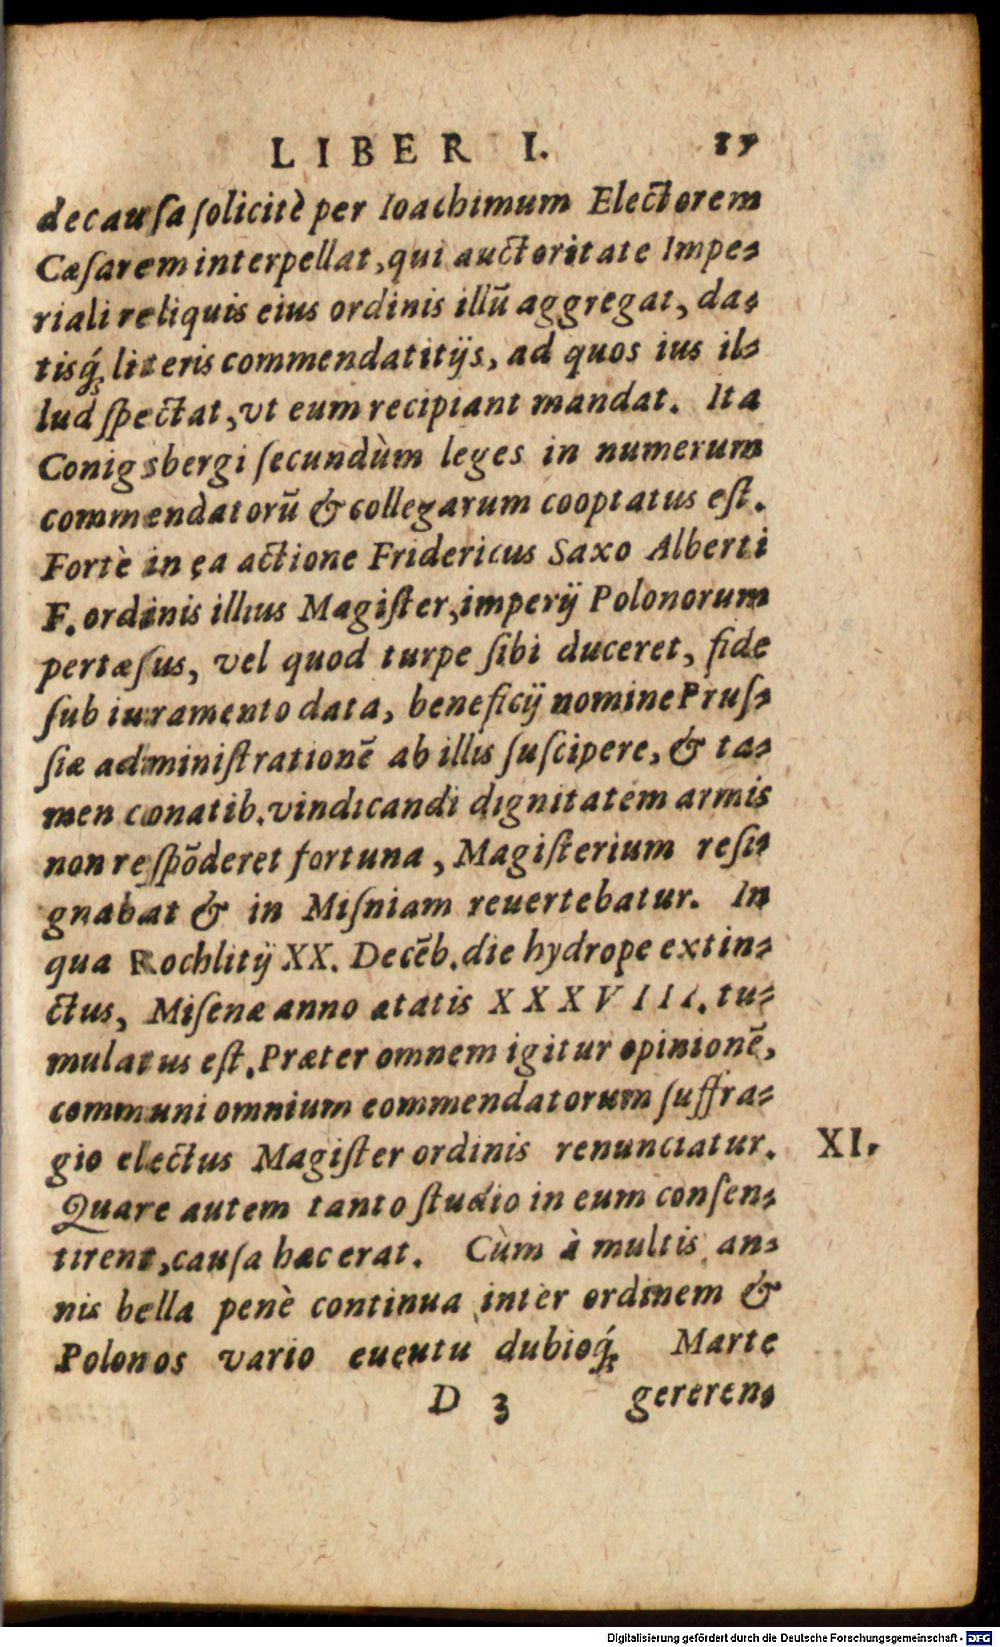 LIBER I.
de causa solicitè per Ioachimum Electorem
Cæsarem interpellat, qui auctoritate Impe-
riali reliquis eius ordinis illũ aggregat, da-
tisq́ʒ literis commendatitijs, ad quos ius il-
lud spectat, vt eum recipiant mandat. Ita
Conigsbergi secundùm leges in numerum
commendatorũ & collegarum cooptatus est.
Fortè in ea actione Fridericus Saxo Alberti
F. ordinis illius Magister, imperij Polonorum
pertæsus, vel quod turpe sibi duceret, fide
sub iuramento data, beneficij nomine Prus-
siæ administrationẽ ab illis suscipere, & ta-
men conatib. vindicandi dignitatem armis
non respõderet fortuna, Magisterium resi-
gnabat & in Misniam reuertebatur. In
qua Rochlitij XX. Decẽb. die hydrope extin-
ctus, Misenæ anno ætatis XXXVIII. tu-
mulatus est. Præter omnem igitur opinionẽ,
communi omnium commendatorum suffra-
gio electus Magister ordinis renunciatur. XI.
Quare autem tanto studio in eum consen-
tirent, causa hæc erat. Cùm à multis an-
nis bella penè continua inter ordinem &
Polonos vario euentu dubioq́ʒ Marte
D 3 gereren-
Digitalisierung gefördert durch die Deutsche Forschungsgemeinschaft - DFG